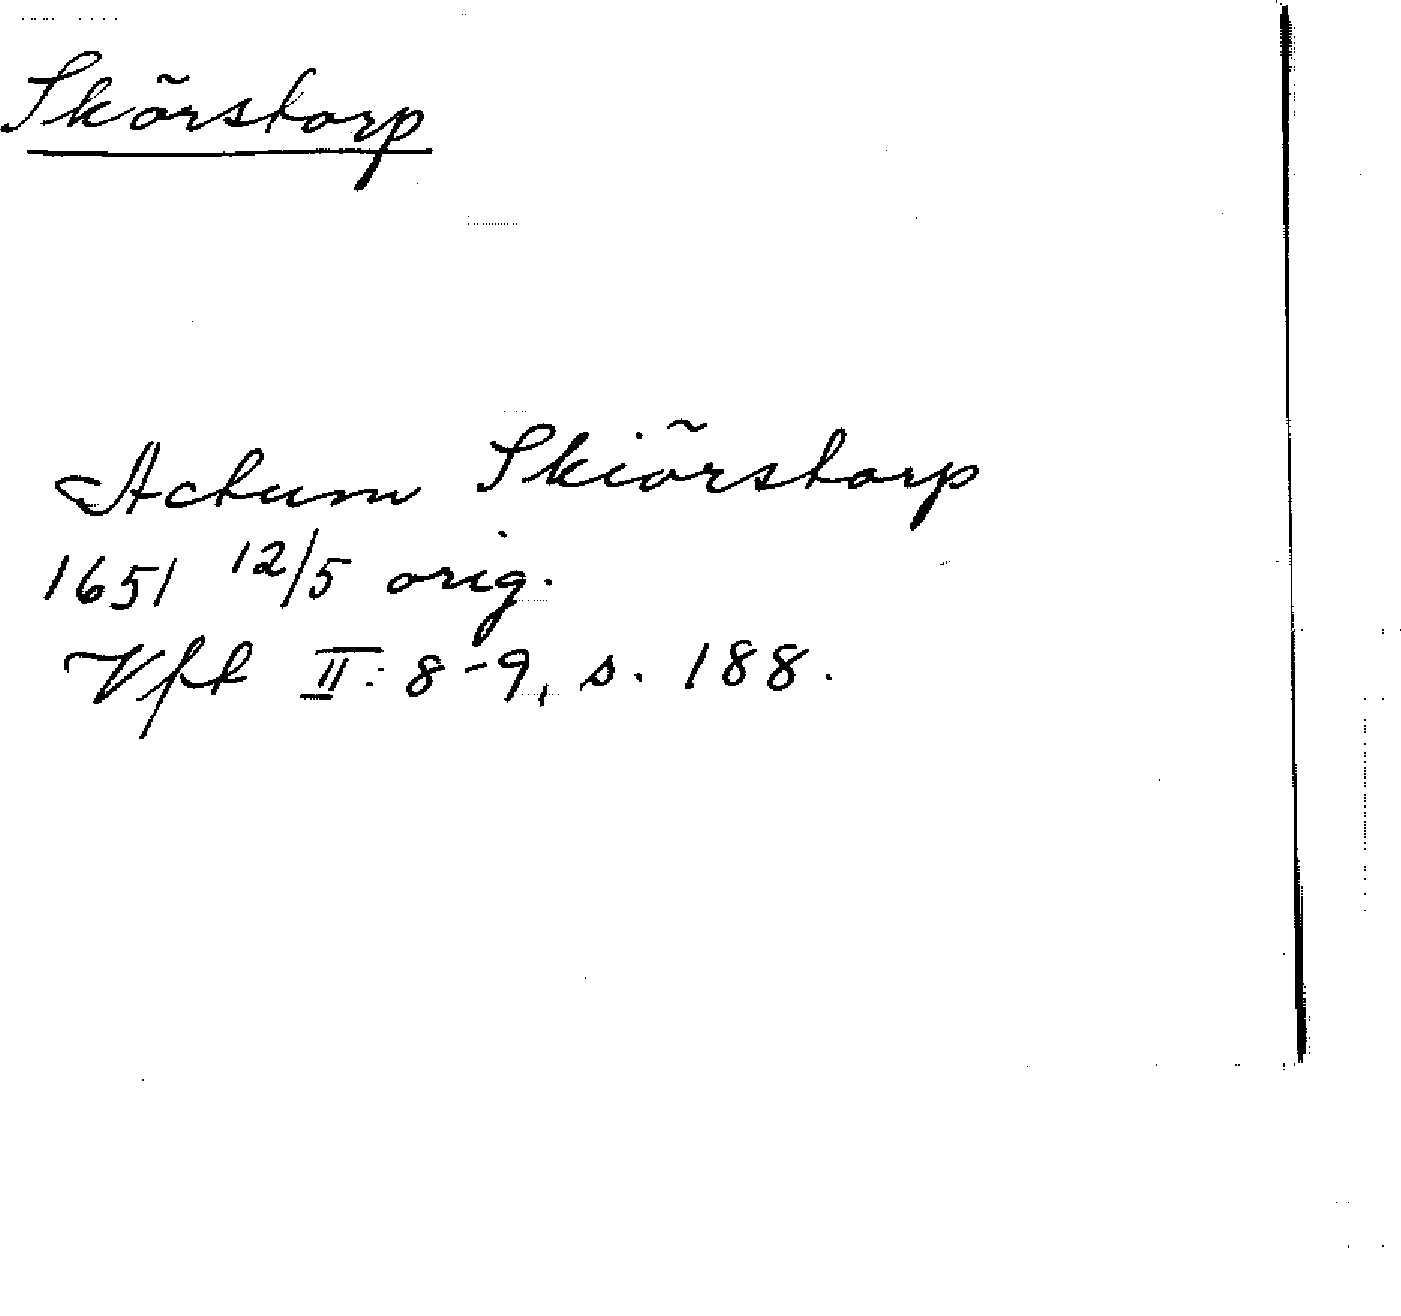 Skörstorp
Actum Skiörstorp
1651 12/5 orig.
Vft II: 8-9, s. 188.